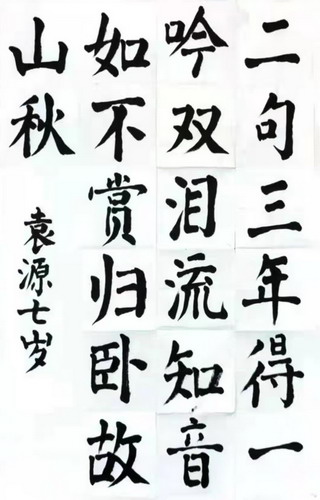 二句三年得一
吟双泪流知音
如不赏归卧故
山秋
袁源七岁